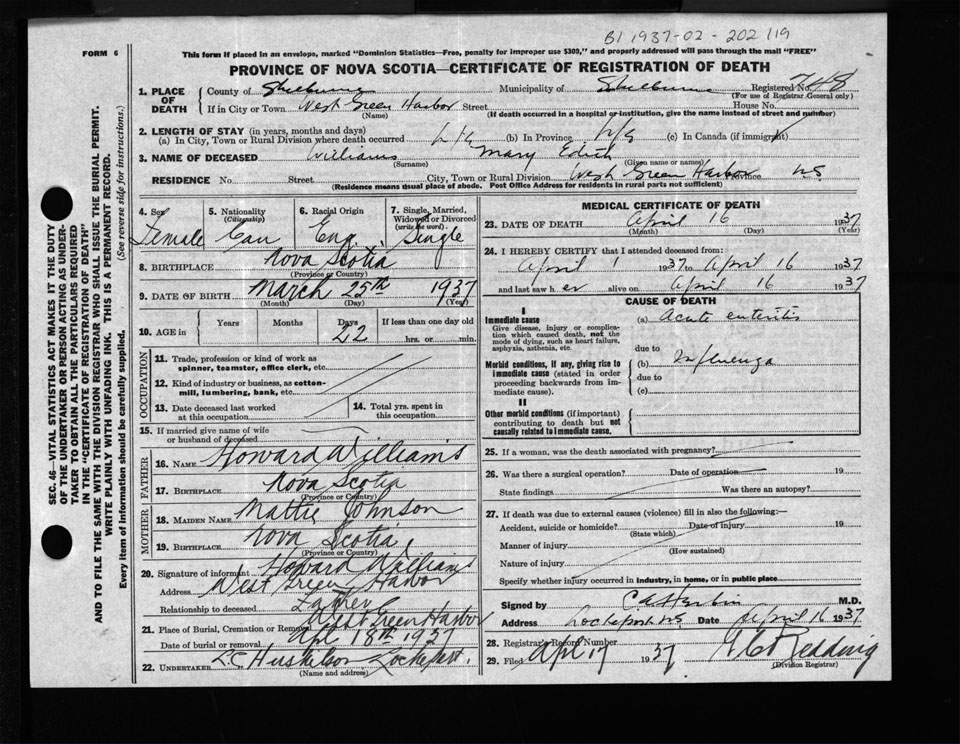 B1 1937-02-202119
FORM 6
This form if placed in an envelope, marked "Dominion Statistics—Free, penalty for improper use $300," and properly addressed will pass through the mail "FREE"
PROVINCE OF NOVA SCOTIA—CERTIFICATE OF REGISTRATION OF DEATH
1. PLACE OF DEATH
County of Shelburne Municipality of Shelburne Registered No. 748
(For use of Registrar General only)
If in City or Town West Green Harbor Street House No.
(Name) (If death occurred in a hospital or institution, give the name instead of street and number)
2. LENGTH OF STAY (in years, months and days)
(a) In City, Town or Rural Division where death occurred (b) In Province (c) In Canada (if immigrant)
3. NAME OF DECEASED Williams Mary Edith
(Surname) (Given name or names)
RESIDENCE No. Street City, Town or Rural Division West Green Harbor Province NS
(Residence means usual place of abode. Post Office Address for residents in rural parts not sufficient)
4. Sex Female
5. Nationality (Citizenship) Can
6. Racial Origin Eng
7. Single, Married, Widowed or Divorced (write the word) Single
8. BIRTHPLACE Nova Scotia
(Province or Country)
9. DATE OF BIRTH March 25th 1937
(Month) (Day) (Year)
10. AGE in Years Months Days 22 If less than one day old hrs. or min.
OCCUPATION
11. Trade, profession or kind of work as spinner, teamster, office clerk, etc.
12. Kind of industry or business, as cotton-mill, lumbering, bank, etc.
13. Date deceased last worked at this occupation
14. Total yrs. spent in this occupation
15. If married give name of wife or husband of deceased
FATHER
16. NAME Howard Williams
17. BIRTHPLACE Nova Scotia
(Province or Country)
MOTHER
18. MAIDEN NAME Mattie Johnson
19. BIRTHPLACE Nova Scotia
(Province or Country)
20. Signature of informant Howard Williams
Address West Green Harbor
Relationship to deceased Father
21. Place of Burial, Cremation or Removal West Green Harbor
Date of burial or removal Apl 18th 1937
22. UNDERTAKER L.C. Huskilson Lockeport.
(Name and address)
MEDICAL CERTIFICATE OF DEATH
23. DATE OF DEATH April 16 1937
(Month) (Day) (Year)
24. I HEREBY CERTIFY that I attended deceased from:
April 1 1937 to April 16 1937
and last saw her alive on April 16 1937
CAUSE OF DEATH
I
Immediate cause
Give disease, injury or complication which caused death, not the mode of dying, such as heart failure, asphyxia, asthenia, etc.
(a) Acute enteritis
due to
Morbid conditions, if any, giving rise to immediate cause (stated in order proceeding backwards from immediate cause).
(b) Influenza
due to
(c)
II
Other morbid conditions (if important) contributing to death but not causally related to immediate cause.
25. If a woman, was the death associated with pregnancy?
26. Was there a surgical operation? Date of operation 19
State findings Was there an autopsy?
27. If death was due to external causes (violence) fill in also the following:—
Accident, suicide or homicide? Date of injury 19
(State which)
Manner of injury
(How sustained)
Nature of injury
Specify whether injury occurred in industry, in home, or in public place
Signed by C A Herbin M.D.
Address Lockeport NS Date April 16 1937
28. Registrar's Record Number
29. Filed Apl 17 1937 Redding
(Division Registrar)
SEC. 46—VITAL STATISTICS ACT MAKES IT THE DUTY
OF THE UNDERTAKER OR PERSON ACTING AS UNDER-
TAKER TO OBTAIN ALL THE PARTICULARS REQUIRED
IN THE "CERTIFICATE OF REGISTRATION OF DEATH"
AND TO FILE THE SAME WITH THE DIVISION REGISTRAR WHO SHALL ISSUE THE BURIAL PERMIT.
WRITE PLAINLY WITH UNFADING INK. THIS IS A PERMANENT RECORD.
Every item of information should be carefully supplied. (See reverse side for instructions.)